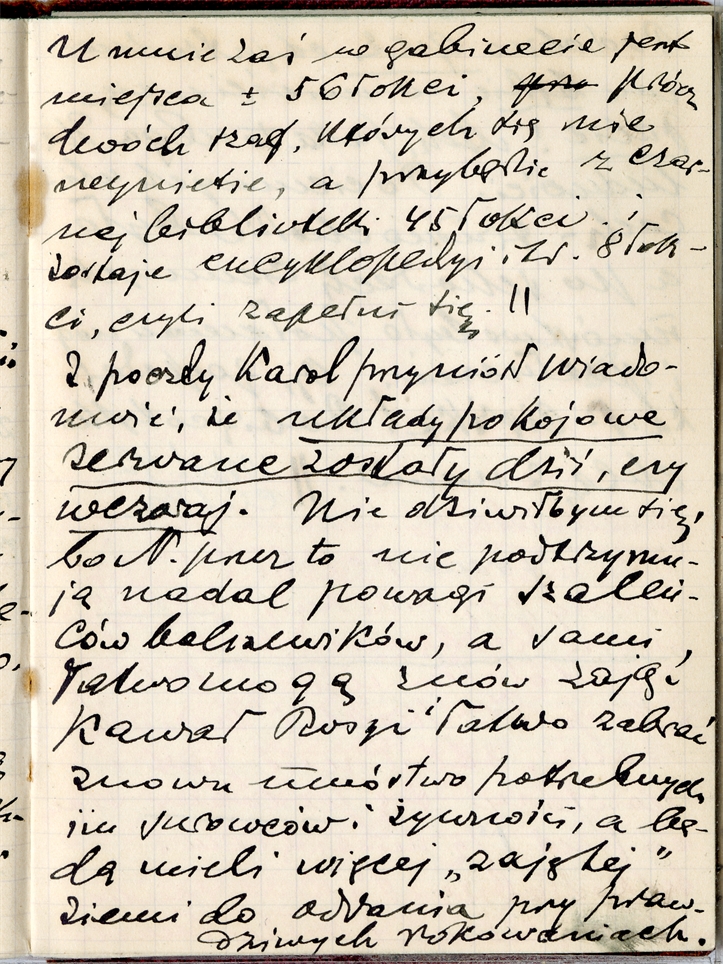 U mnie zaś w gabinecie jest
miejsca ± 56 łokci, prócz
dwóch szaf, których się nie
a przybędzie z czar-
nej biblioteki 45 łokci i
zostaje encyklopedyi itd. 8 łok-
ci, czyli zapełni się. !!
Z poczty Karol przyniósł wiado-
mość, że układy pokojowe
zerwane zostały dziś, czy
wczoraj. Nie dziwiłbym się,
bo N. przez to nie podtrzymu-
ją nadal powagi szaleń-
ców bolszewików, a sami,
łatwo mogą znów zająć
kawał Rosyi i łatwo zabrać
znowu mnóstwo potrzebnych
im surowców i żywności, a bę-
dą mieli więcej „zajętej”
ziemi do oddania przy praw-
dziwych rokowaniach.